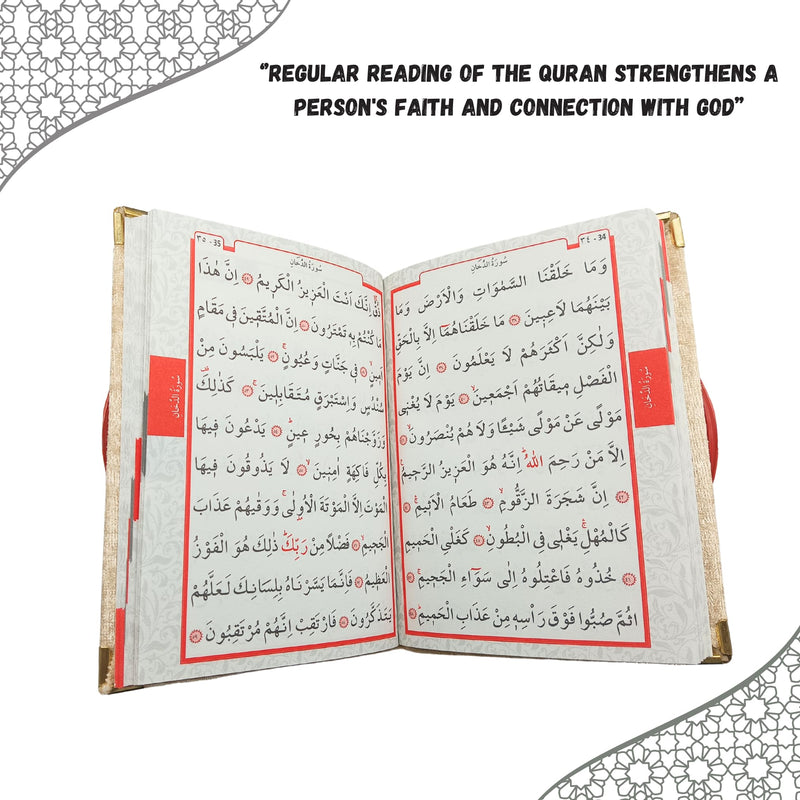 "REGULAR READING OF THE QURAN STRENGTHENS A
PERSON'S FAITH AND CONNECTION WITH GOD"
٣٤ - 34
سُورَةُ الدُّخَانِ
وَمَا خَلَقْنَا السَّمٰوَاتِ وَالْاَرْضَ وَمَا
بَيْنَهُمَا لَاعِبِينَ مَا خَلَقْنَاهُمَٓا اِلَّا بِالْحَقِّ
وَلٰكِنَّ اَكْثَرَهُمْ لَا يَعْلَمُونَ اِنَّ يَوْمَ
الْفَصْلِ مِيقَاتُهُمْ اَجْمَعِينَ يَوْمَ لَا يُغْنِى
مَوْلًى عَنْ مَوْلًى شَيْـًٔا وَلَا هُمْ يُنْصَرُونَ
اِلَّا مَنْ رَحِمَ اللّٰهُ اِنَّهُ هُوَ الْعَزِيزُ الرَّحِيمُ
اِنَّ شَجَرَةَ الزَّقُّومِ طَعَامُ الْاَثِيمِ
كَالْمُهْلِ يَغْلِى فِى الْبُطُونِ كَغَلْىِ الْحَمِيمِ
خُذُوهُ فَاعْتِلُوهُ اِلٰى سَوَٓاءِ الْجَحِيمِ
ثُمَّ صُبُّوا فَوْقَ رَأْسِهِ مِنْ عَذَابِ الْحَمِيمِ
سُورَةُ الدُّخَانِ
٣٥ - 35
سُورَةُ الدُّخَانِ
ذُقْ اِنَّكَ اَنْتَ الْعَزِيزُ الْكَرِيمُ اِنَّ هٰذَا
مَا كُنْتُمْ بِهِ تَمْتَرُونَ اِنَّ الْمُتَّقِينَ فِى مَقَامٍ
اَمِينٍ فِى جَنَّاتٍ وَعُيُونٍ يَلْبَسُونَ مِنْ
سُنْدُسٍ وَاِسْتَبْرَقٍ مُتَقَابِلِينَ كَذٰلِكَ
وَزَوَّجْنَاهُمْ بِحُورٍ عِينٍ يَدْعُونَ فِيهَا
بِكُلِّ فَاكِهَةٍ اٰمِنِينَ لَا يَذُوقُونَ فِيهَا
الْمَوْتَ اِلَّا الْمَوْتَةَ الْاُولٰى وَوَقٰيهُمْ عَذَابَ
الْجَحِيمِ فَضْلًا مِنْ رَبِّكَ ذٰلِكَ هُوَ الْفَوْزُ
الْعَظِيمُ فَاِنَّمَا يَسَّرْنَاهُ بِلِسَانِكَ لَعَلَّهُمْ
يَتَذَكَّرُونَ فَارْتَقِبْ اِنَّهُمْ مُرْتَقِبُونَ
سُورَةُ الدُّخَانِ